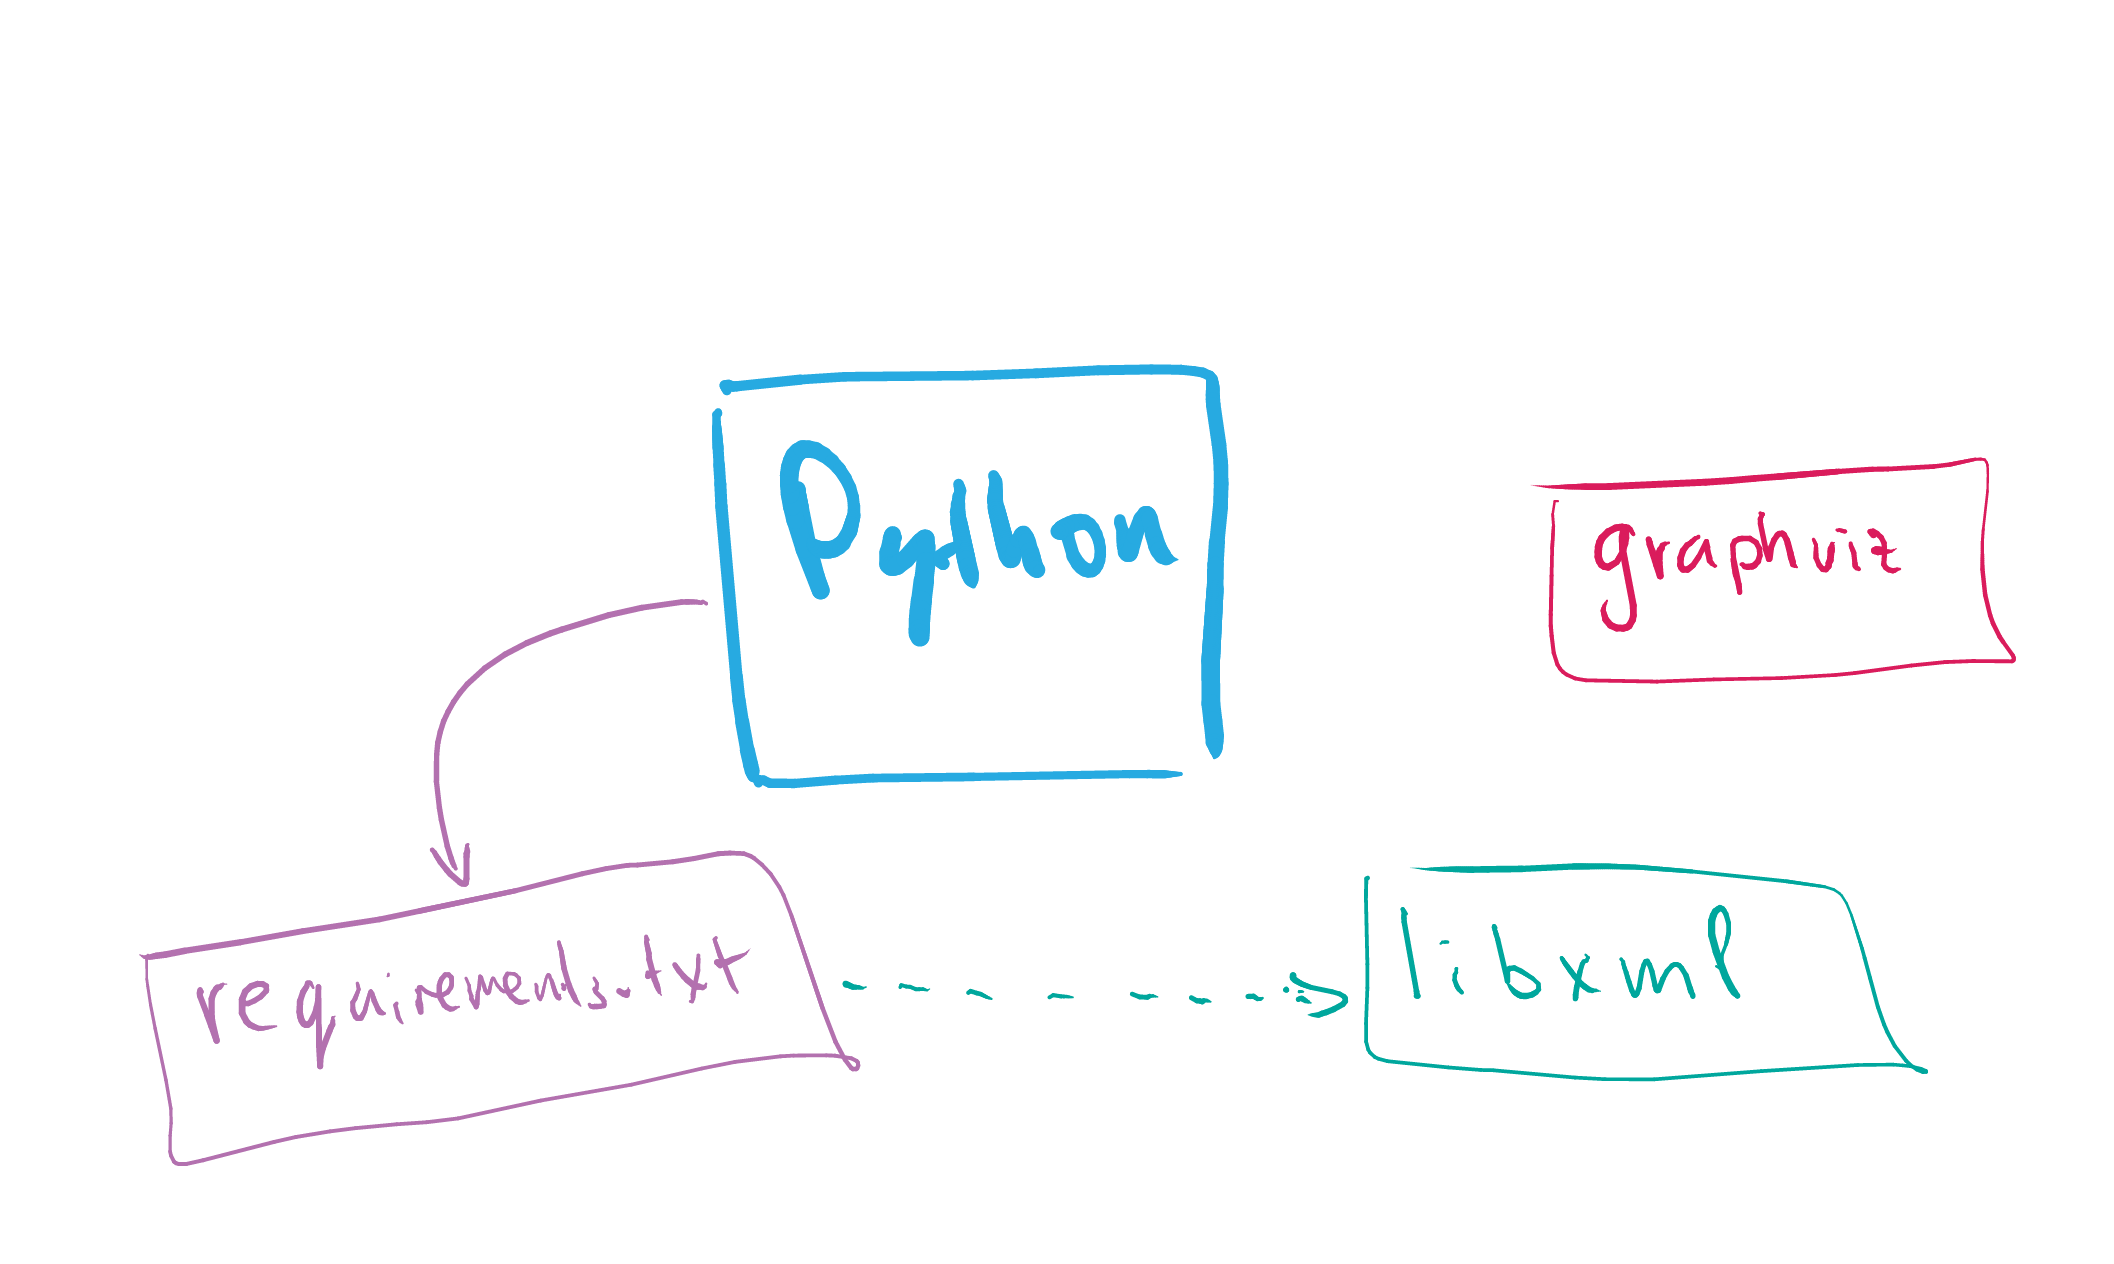 Python
graphviz
requirements.txt
libxml